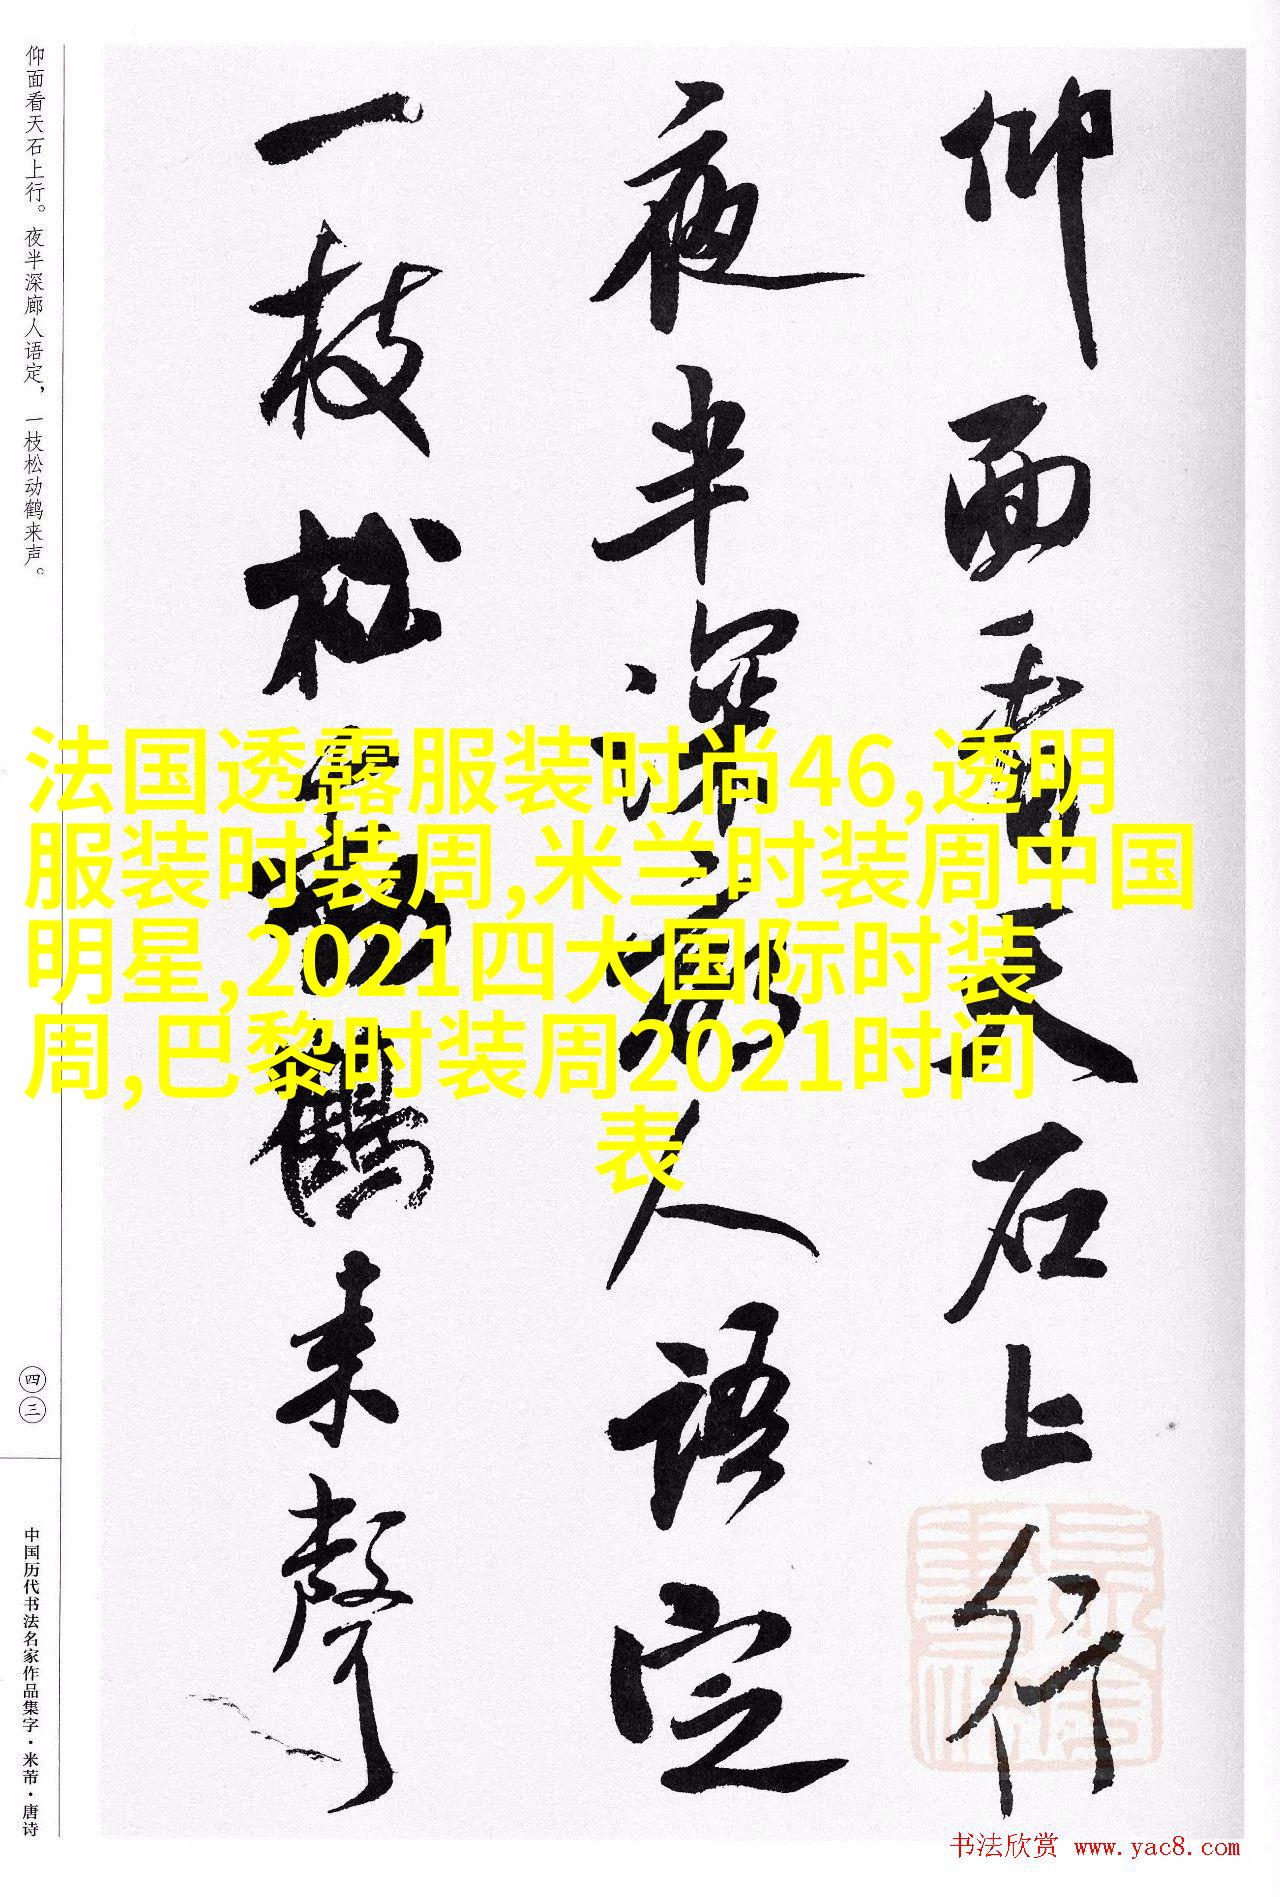 仰面看天石上行
夜半深廊人语定
一枝松动鹤来声
仰面看天石上行。夜半深廊人语定，一枝松动鹤来声。
四三
中国历代书法名家作品集字·米芾·唐诗
法国透露服装时尚46,透明
服装时装周,米兰时装周中国
明星,2021四大国际时装
周,巴黎时装周2021时间
表
书法欣赏 www.yac8.com